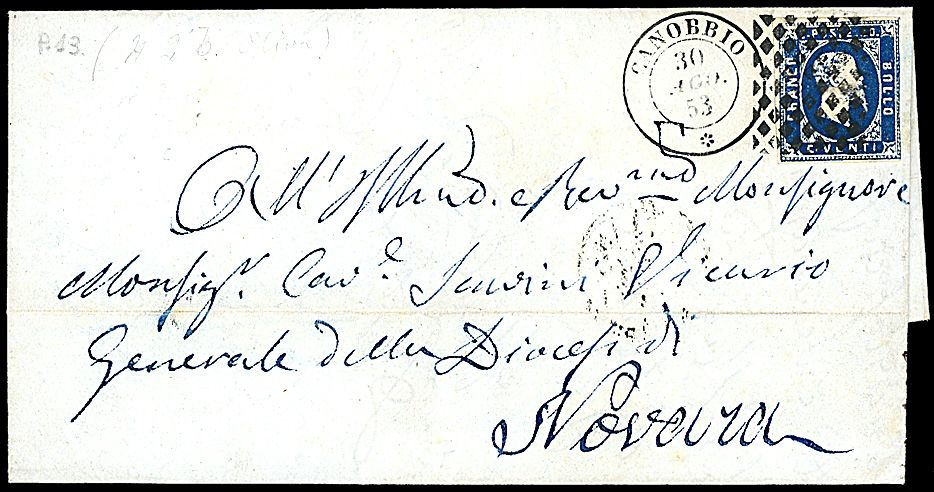 P.13.
CANOBBIO
30
AGO.
53
FRANCO
BOLLO
C. VENTI
All' Ill.mo e Rev.mo Monsignore
Monsig.r Cav.e Vicario
Generale della Diocesi di
Novara